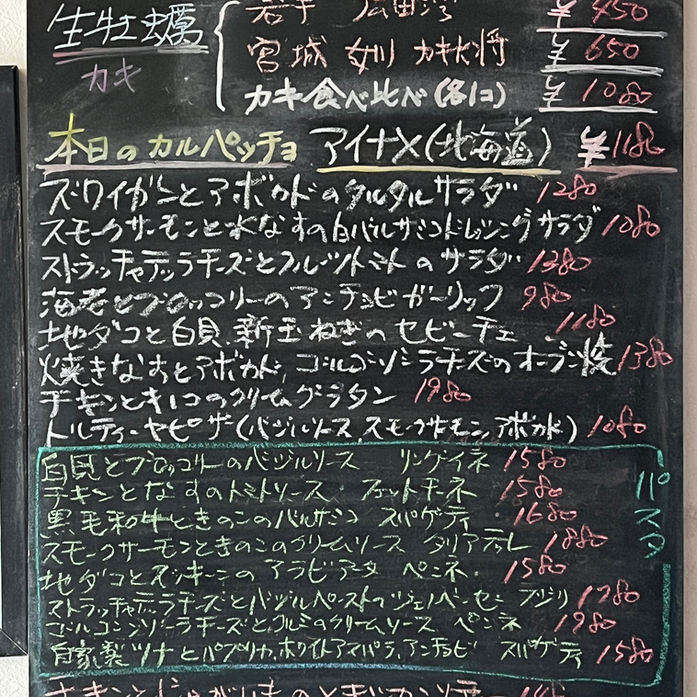 生牡蠣 岩手 広田湾 ¥450
カキ 宮城 女川 カキ大将 ¥650
カキ食べ比べ(各1コ) ¥1080
本日のカルパッチョ アイナメ(北海道) ¥1180
ズワイガニとアボカドのタルタルサラダ 1280
スモークサーモンと水なすの白バルサミコドレッシングサラダ 1080
ストラッチャテッラチーズとフルーツトマトのサラダ 1380
海老とブロッコリーのアンチョビガーリック 980
地ダコと白貝、新玉ねぎのセビーチェ 1180
焼きなすとアボカド、ゴルゴンゾーラチーズのオーブン焼 1380
チキンときのこのクリームグラタン 1980
トルティーヤピザ(バジルソース、スモークサーモン、アボカド) 1080
パスタ
白貝とブロッコリーのバジルソース リングイネ 1580
チキンとなすのトマトソース フェットチーネ 1580
黒毛和牛ときのこのバルサミコ スパゲティ 1680
スモークサーモンときのこのクリームソース タリアテッレ 1880
地ダコとズッキーニのアラビアータ ペンネ 1580
ストラッチャテッラチーズとバジルペーストのジェノベーゼ フジリ 1780
ゴルゴンゾーラチーズとクルミのクリームソース ペンネ 1980
自家製ツナとパプリカ、ホワイトアスパラ、アンチョビ スパゲティ 1580